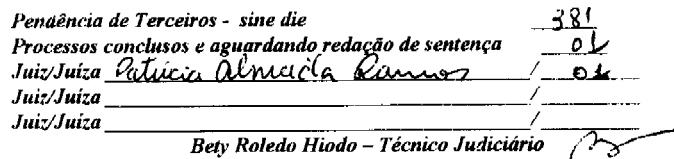 Pendência de Terceiros - sine die 381
Processos conclusos e aguardando redação de sentença 01
Juiz/Juíza Patrícia Almeida Ramos / 01
Juiz/Juíza /
Juiz/Juíza /
Bety Roledo Hiodo – Técnico Judiciário